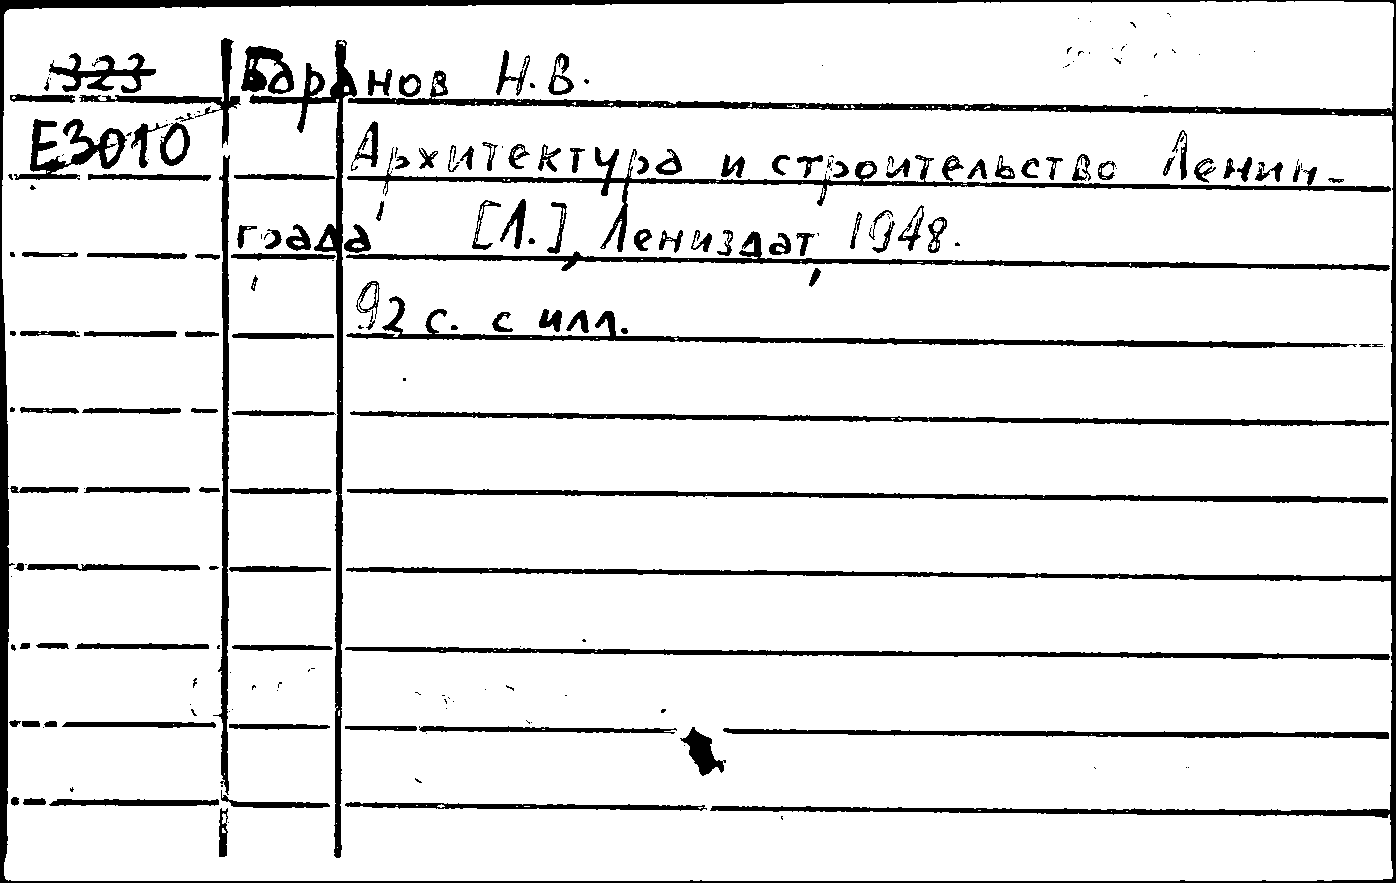 1323 Баранов Н.В.
Е3010 Архитектура и строительство Ленин-
града [Л.], Лениздат, 1948.
92 с. с илл.